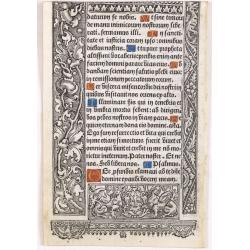 daturum se nobis. Ut sine timore
de manu inimicorum nostrorum libe
rati, seruiamus illi. In sancti
te et iusticia coram ipso: omnibus
diebus nostris. Et tu puer propheta
altissimi vocaberis: preibis enim ante
faciem domini parare vias eius. Ad
dandam scientiam salutis plebi eius:
in remissionem peccatorum eorum.
Per viscera misericordie dei nostri: in
quibus visitauit nos oriens ex alto.
Illuminare his qui in tenebris et
in umbra mortis sedent: ad dirigen
dos pedes nostros in viam pacis.
Ego sum resurrectio et vita qui credit
in me etiam si mortuus fuerit viuet et omnis
qui viuit et credit in me non morietur
ineternum. Pater noster. Et ne
nos. Sed libera nos. Psalmus.
De profundis clamaui ad te do
mine: domine exaudi vocem meam.